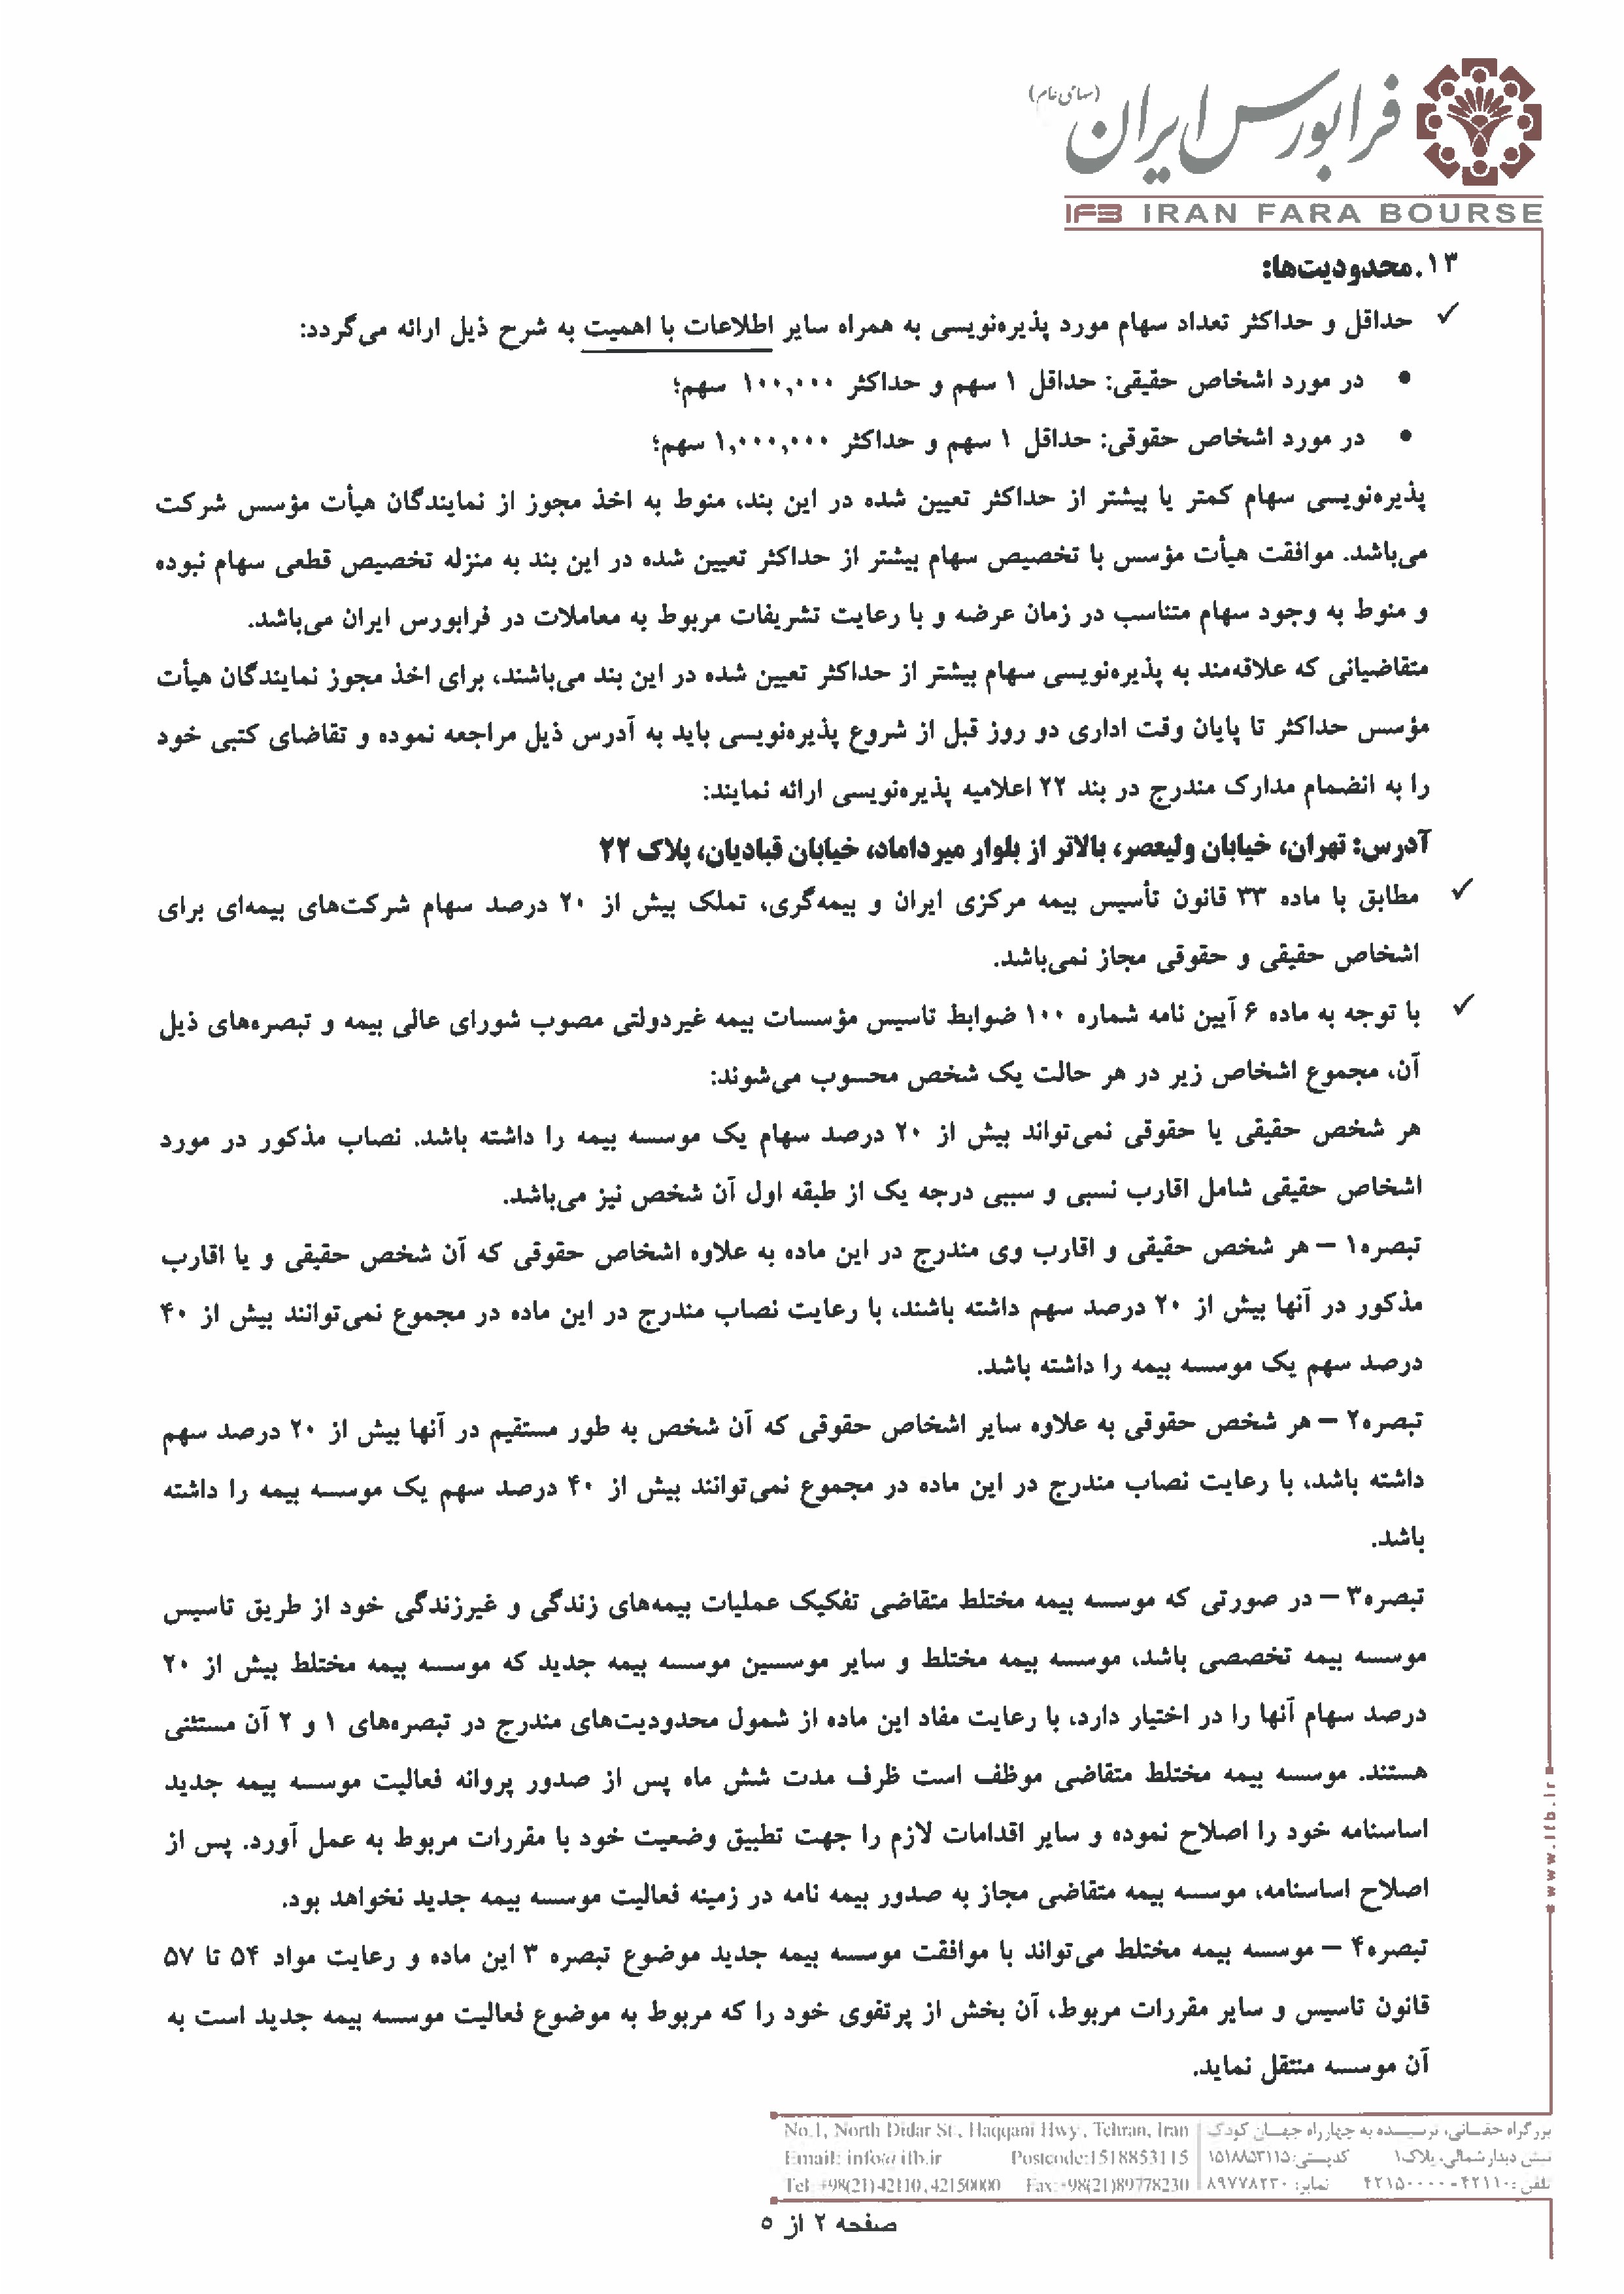 فرابورس ایران (سهامی عام)
IFB IRAN FARA BOURSE
۱۳. محدودیت‌ها:
✓ حداقل و حداکثر تعداد سهام مورد پذیره‌نویسی به همراه سایر اطلاعات با اهمیت به شرح ذیل ارائه می‌گردد:
• در مورد اشخاص حقیقی: حداقل ۱ سهم و حداکثر ۱۰۰,۰۰۰ سهم؛
• در مورد اشخاص حقوقی: حداقل ۱ سهم و حداکثر ۱,۰۰۰,۰۰۰ سهم؛
پذیره‌نویسی سهام کمتر یا بیشتر از حداکثر تعیین شده در این بند، منوط به اخذ مجوز از نمایندگان هیأت مؤسس شرکت
می‌باشد. موافقت هیأت مؤسس با تخصیص سهام بیشتر از حداکثر تعیین شده در این بند به منزله تخصیص قطعی سهام نبوده
و منوط به وجود سهام متناسب در زمان عرضه و با رعایت تشریفات مربوط به معاملات در فرابورس ایران می‌باشد.
متقاضیانی که علاقه‌مند به پذیره‌نویسی سهام بیشتر از حداکثر تعیین شده در این بند می‌باشند، برای اخذ مجوز نمایندگان هیأت
مؤسس حداکثر تا پایان وقت اداری دو روز قبل از شروع پذیره‌نویسی باید به آدرس ذیل مراجعه نموده و تقاضای کتبی خود
را به انضمام مدارک مندرج در بند ۲۲ اعلامیه پذیره‌نویسی ارائه نمایند:
آدرس: تهران، خیابان ولیعصر، بالاتر از بلوار میرداماد، خیابان قبادیان، پلاک ۲۲
✓ مطابق با ماده ۳۳ قانون تأسیس بیمه مرکزی ایران و بیمه‌گری، تملک بیش از ۲۰ درصد سهام شرکت‌های بیمه‌ای برای
اشخاص حقیقی و حقوقی مجاز نمی‌باشد.
✓ با توجه به ماده ۶ آیین نامه شماره ۱۰۰ ضوابط تاسیس مؤسسات بیمه غیردولتی مصوب شورای عالی بیمه و تبصره‌های ذیل
آن، مجموع اشخاص زیر در هر حالت یک شخص محسوب می‌شوند:
هر شخص حقیقی یا حقوقی نمی‌تواند بیش از ۲۰ درصد سهام یک موسسه بیمه را داشته باشد. نصاب مذکور در مورد
اشخاص حقیقی شامل اقارب نسبی و سببی درجه یک از طبقه اول آن شخص نیز می‌باشد.
تبصره۱ – هر شخص حقیقی و اقارب وی مندرج در این ماده به علاوه اشخاص حقوقی که آن شخص حقیقی و یا اقارب
مذکور در آنها بیش از ۲۰ درصد سهم داشته باشند، با رعایت نصاب مندرج در این ماده در مجموع نمی‌توانند بیش از ۴۰
درصد سهم یک موسسه بیمه را داشته باشد.
تبصره۲ – هر شخص حقوقی به علاوه سایر اشخاص حقوقی که آن شخص به طور مستقیم در آنها بیش از ۲۰ درصد سهم
داشته باشد، با رعایت نصاب مندرج در این ماده در مجموع نمی‌توانند بیش از ۴۰ درصد سهم یک موسسه بیمه را داشته
باشد.
تبصره۳ – در صورتی که موسسه بیمه مختلط متقاضی تفکیک عملیات بیمه‌های زندگی و غیرزندگی خود از طریق تاسیس
موسسه بیمه تخصصی باشد، موسسه بیمه مختلط و سایر موسسین موسسه بیمه جدید که موسسه بیمه مختلط بیش از ۲۰
درصد سهام آنها را در اختیار دارد، با رعایت مفاد این ماده از شمول محدودیت‌های مندرج در تبصره‌های ۱ و ۲ آن مستثنی
هستند. موسسه بیمه مختلط متقاضی موظف است ظرف مدت شش ماه پس از صدور پروانه فعالیت موسسه بیمه جدید
اساسنامه خود را اصلاح نموده و سایر اقدامات لازم را جهت تطبیق وضعیت خود با مقررات مربوط به عمل آورد. پس از
اصلاح اساسنامه، موسسه بیمه متقاضی مجاز به صدور بیمه نامه در زمینه فعالیت موسسه بیمه جدید نخواهد بود.
تبصره۴ – موسسه بیمه مختلط می‌تواند با موافقت موسسه بیمه جدید موضوع تبصره ۳ این ماده و رعایت مواد ۵۴ تا ۵۷
قانون تاسیس و سایر مقررات مربوط، آن بخش از پرتفوی خود را که مربوط به موضوع فعالیت موسسه بیمه جدید است به
آن موسسه منتقل نماید.
www.ifb.ir
بزرگراه حقـانی، نرسیـده به چهارراه جهـان کودک
نبش دیدار شمالی، پلاک۱ کدپستی: ۱۵۱۸۸۵۳۱۱۵
تلفن: ۴۲۱۱۰ - ۴۲۱۵۰۰۰۰ نمابر: ۸۹۷۷۸۲۳۰
No.1, North Didar St., Haqqani Hwy., Tehran, Iran
Email: info@ifb.ir Postcode:1518853115
Tel: +98(21)42110, 42150000 Fax:+98(21)89778230
صفحه ۲ از ۵